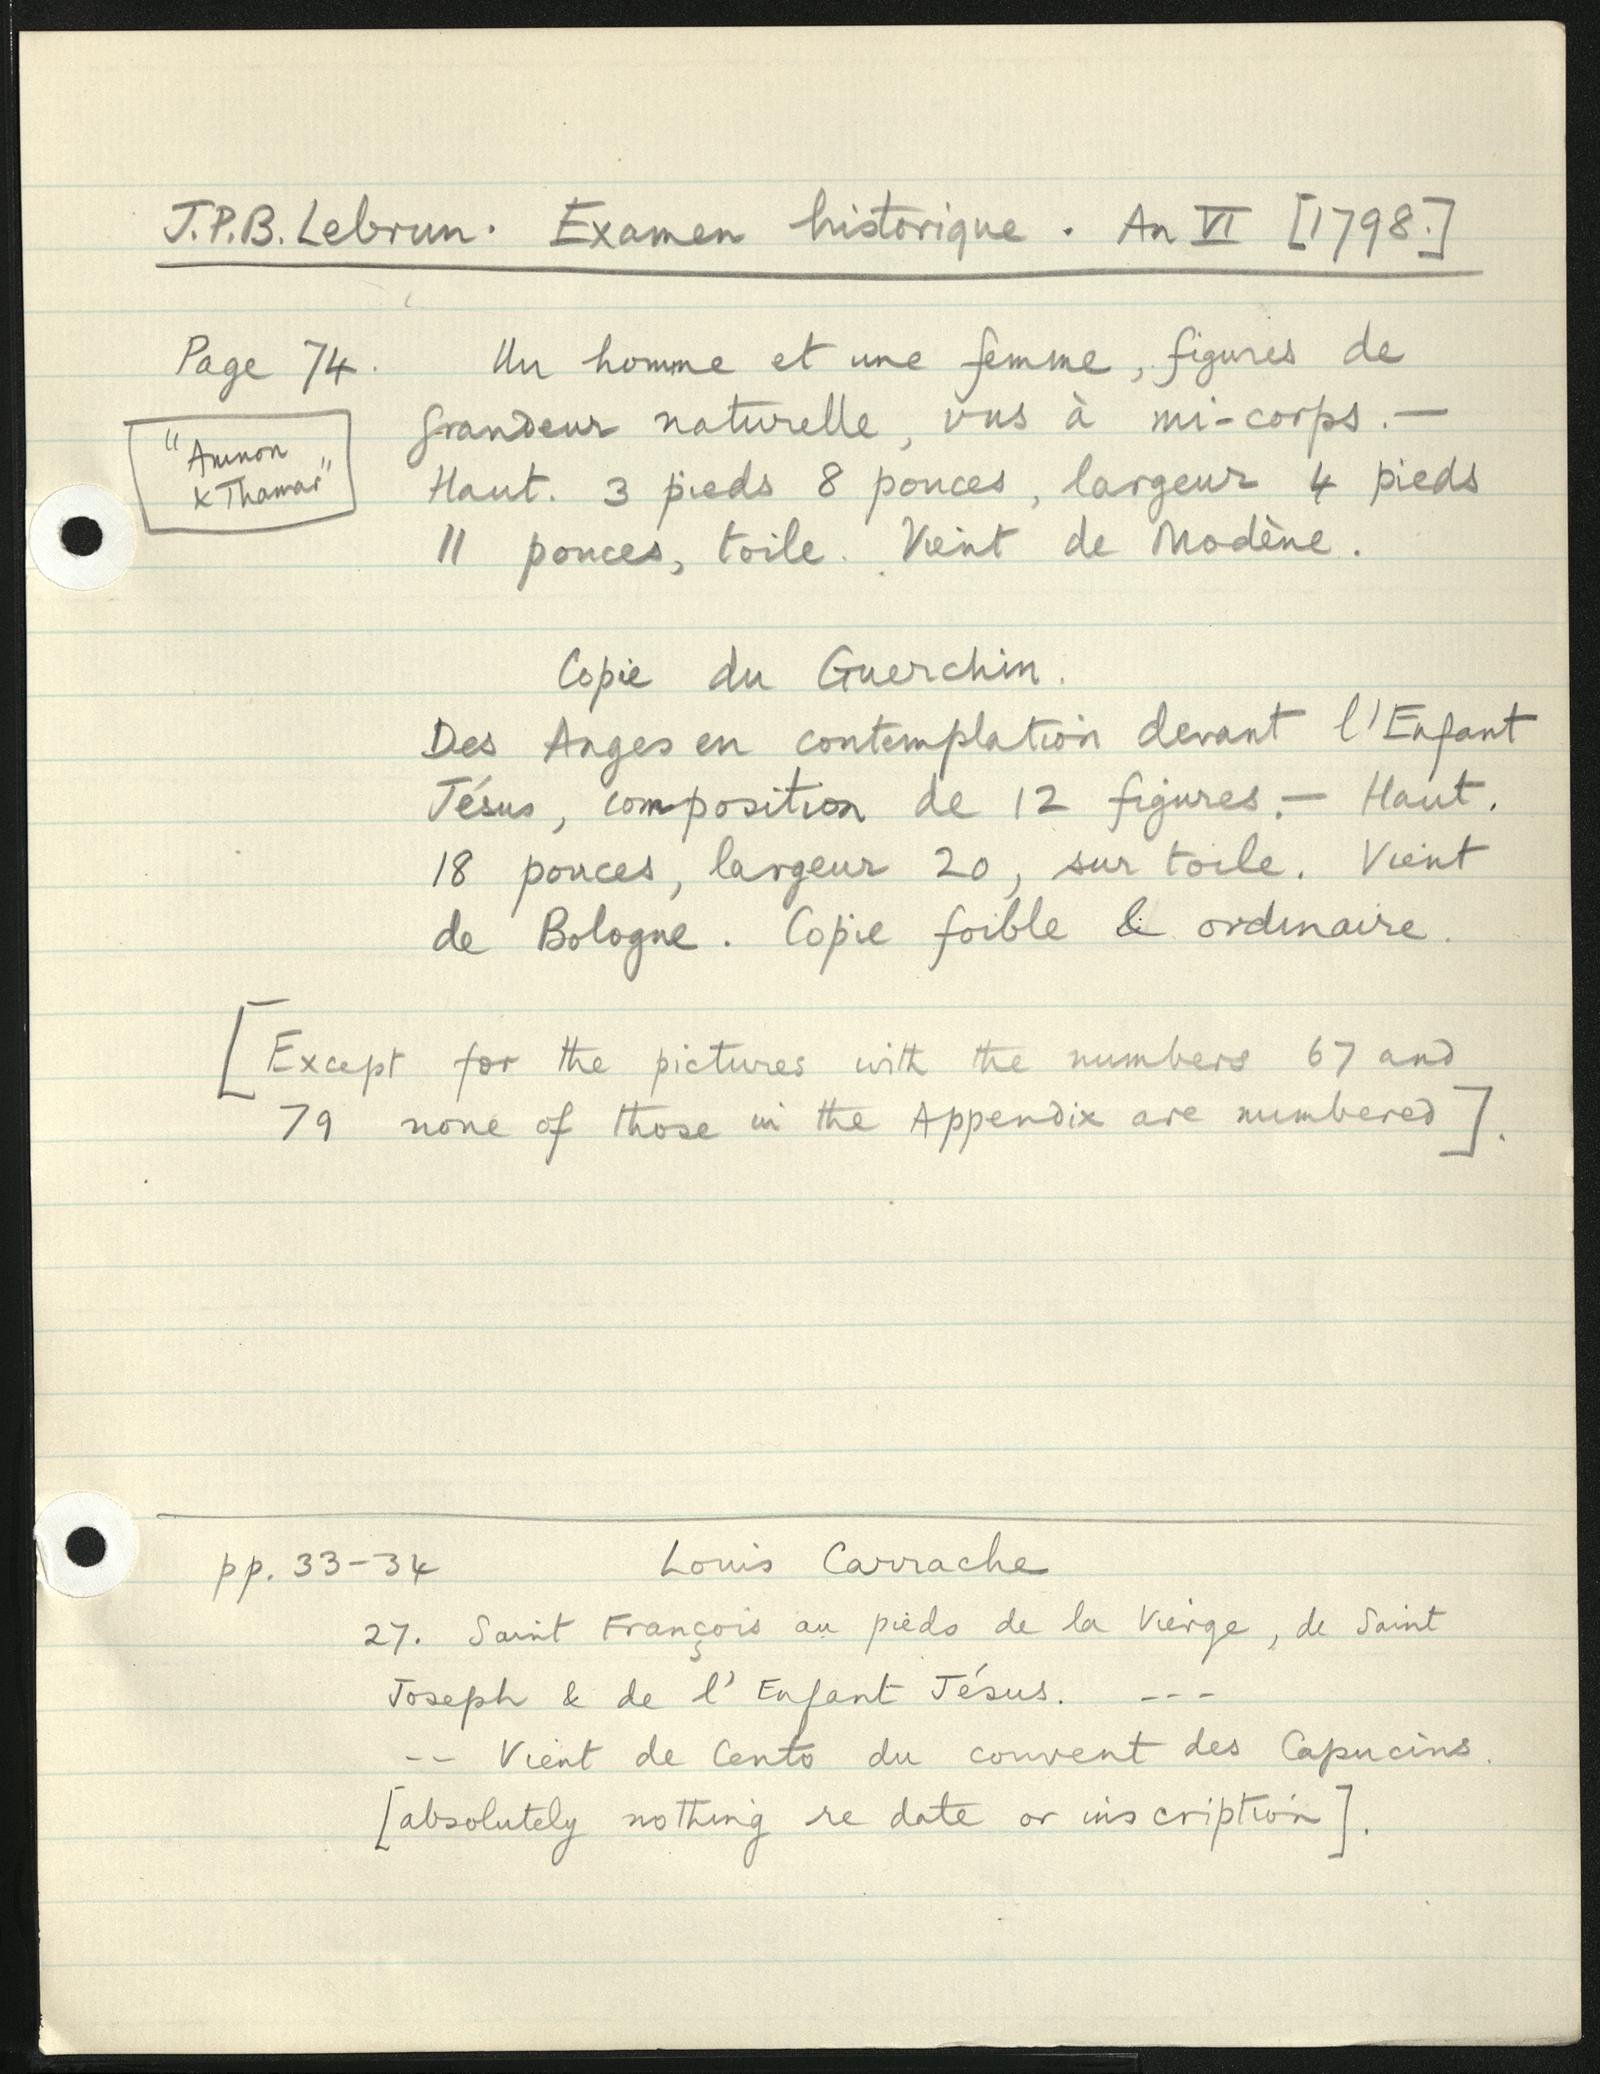 J.P.B. Lebrun. Examen historique. An VI [1798.]
Page 74. Un homme et une femme, figures de
grandeur naturelle, vus à mi-corps. —
"Amnon
& Thamar"
Haut. 3 pieds 8 pouces, largeur 4 pieds
11 pouces, toile. Vient de Modène.
Copie du Guerchin.
Des Anges en contemplation devant l'Enfant
Jésus, composition de 12 figures. — Haut.
18 pouces, largeur 20, sur toile. Vient
de Bologne. Copie foible & ordinaire.
[Except for the pictures with the numbers 67 and
79 none of those in the Appendix are numbered].
pp. 33-34 Louis Carrache
27. Saint François au pieds de la Vierge, de Saint
Joseph & de l'Enfant Jésus. ---
-- Vient de Cento du couvent des Capucins.
[absolutely nothing re date or inscription].